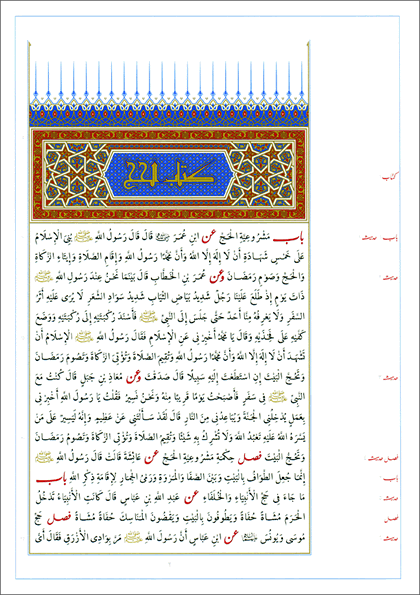 كتاب الحج
كتاب
باب مَشْرُوعِيَّةِ الْحَجِّ عن ابْنِ عُمَرَ قَالَ قَالَ رَسُولُ اللَّهِ ﷺ بُنِيَ الْإِسْلَامُ
باب حديث
عَلَى خَمْسٍ شَهَادَةِ أَنْ لَا إِلَهَ إِلَّا اللَّهُ وَأَنَّ مُحَمَّدًا رَسُولُ اللَّهِ وَإِقَامِ الصَّلَاةِ وَإِيتَاءِ الزَّكَاةِ
وَالْحَجِّ وَصَوْمِ رَمَضَانَ وعن عُمَرَ بْنِ الْخَطَّابِ قَالَ بَيْنَمَا نَحْنُ عِنْدَ رَسُولِ اللَّهِ ﷺ
حديث
ذَاتَ يَوْمٍ إِذْ طَلَعَ عَلَيْنَا رَجُلٌ شَدِيدُ بَيَاضِ الثِّيَابِ شَدِيدُ سَوَادِ الشَّعَرِ لَا يُرَى عَلَيْهِ أَثَرُ
السَّفَرِ وَلَا يَعْرِفُهُ مِنَّا أَحَدٌ حَتَّى جَلَسَ إِلَى النَّبِيِّ ﷺ فَأَسْنَدَ رُكْبَتَيْهِ إِلَى رُكْبَتَيْهِ وَوَضَعَ
كَفَّيْهِ عَلَى فَخِذَيْهِ وَقَالَ يَا مُحَمَّدُ أَخْبِرْنِي عَنِ الْإِسْلَامِ فَقَالَ رَسُولُ اللَّهِ ﷺ الْإِسْلَامُ أَنْ
تَشْهَدَ أَنْ لَا إِلَهَ إِلَّا اللَّهُ وَأَنَّ مُحَمَّدًا رَسُولُ اللَّهِ وَتُقِيمَ الصَّلَاةَ وَتُؤْتِيَ الزَّكَاةَ وَتَصُومَ رَمَضَانَ
وَتَحُجَّ الْبَيْتَ إِنِ اسْتَطَعْتَ إِلَيْهِ سَبِيلًا قَالَ صَدَقْتَ وعن مُعَاذِ بْنِ جَبَلٍ قَالَ كُنْتُ مَعَ
حديث
النَّبِيِّ ﷺ فِي سَفَرٍ فَأَصْبَحْتُ يَوْمًا قَرِيبًا مِنْهُ وَنَحْنُ نَسِيرُ فَقُلْتُ يَا رَسُولَ اللَّهِ أَخْبِرْنِي
بِعَمَلٍ يُدْخِلُنِي الْجَنَّةَ وَيُبَاعِدُنِي مِنَ النَّارِ قَالَ لَقَدْ سَأَلْتَنِي عَنْ عَظِيمٍ وَإِنَّهُ لَيَسِيرٌ عَلَى مَنْ
يَسَّرَهُ اللَّهُ عَلَيْهِ تَعْبُدُ اللَّهَ وَلَا تُشْرِكُ بِهِ شَيْئًا وَتُقِيمُ الصَّلَاةَ وَتُؤْتِي الزَّكَاةَ وَتَصُومُ رَمَضَانَ
وَتَحُجُّ الْبَيْتَ فصل حِكْمَةِ مَشْرُوعِيَّةِ الْحَجِّ عن عَائِشَةَ قَالَتْ قَالَ رَسُولُ اللَّهِ ﷺ
فصل حديث
إِنَّمَا جُعِلَ الطَّوَافُ بِالْبَيْتِ وَبَيْنَ الصَّفَا وَالْمَرْوَةِ وَرَمْيُ الْجِمَارِ لِإِقَامَةِ ذِكْرِ اللَّهِ باب
باب
مَا جَاءَ فِي حَجِّ الْأَنْبِيَاءِ وَالْخُلَفَاءِ عن عَبْدِ اللَّهِ بْنِ عَبَّاسٍ قَالَ كَانَتِ الْأَنْبِيَاءُ تَدْخُلُ
حديث
الْحَرَمَ مُشَاةً حُفَاةً وَيَطُوفُونَ بِالْبَيْتِ وَيَقْضُونَ الْمَنَاسِكَ حُفَاةً مُشَاةً فصل حَجِّ
فصل
مُوسَى وَيُونُسَ عن ابْنِ عَبَّاسٍ أَنَّ رَسُولَ اللَّهِ ﷺ مَرَّ بِوَادِي الْأَزْرَقِ فَقَالَ أَيُّ
حديث